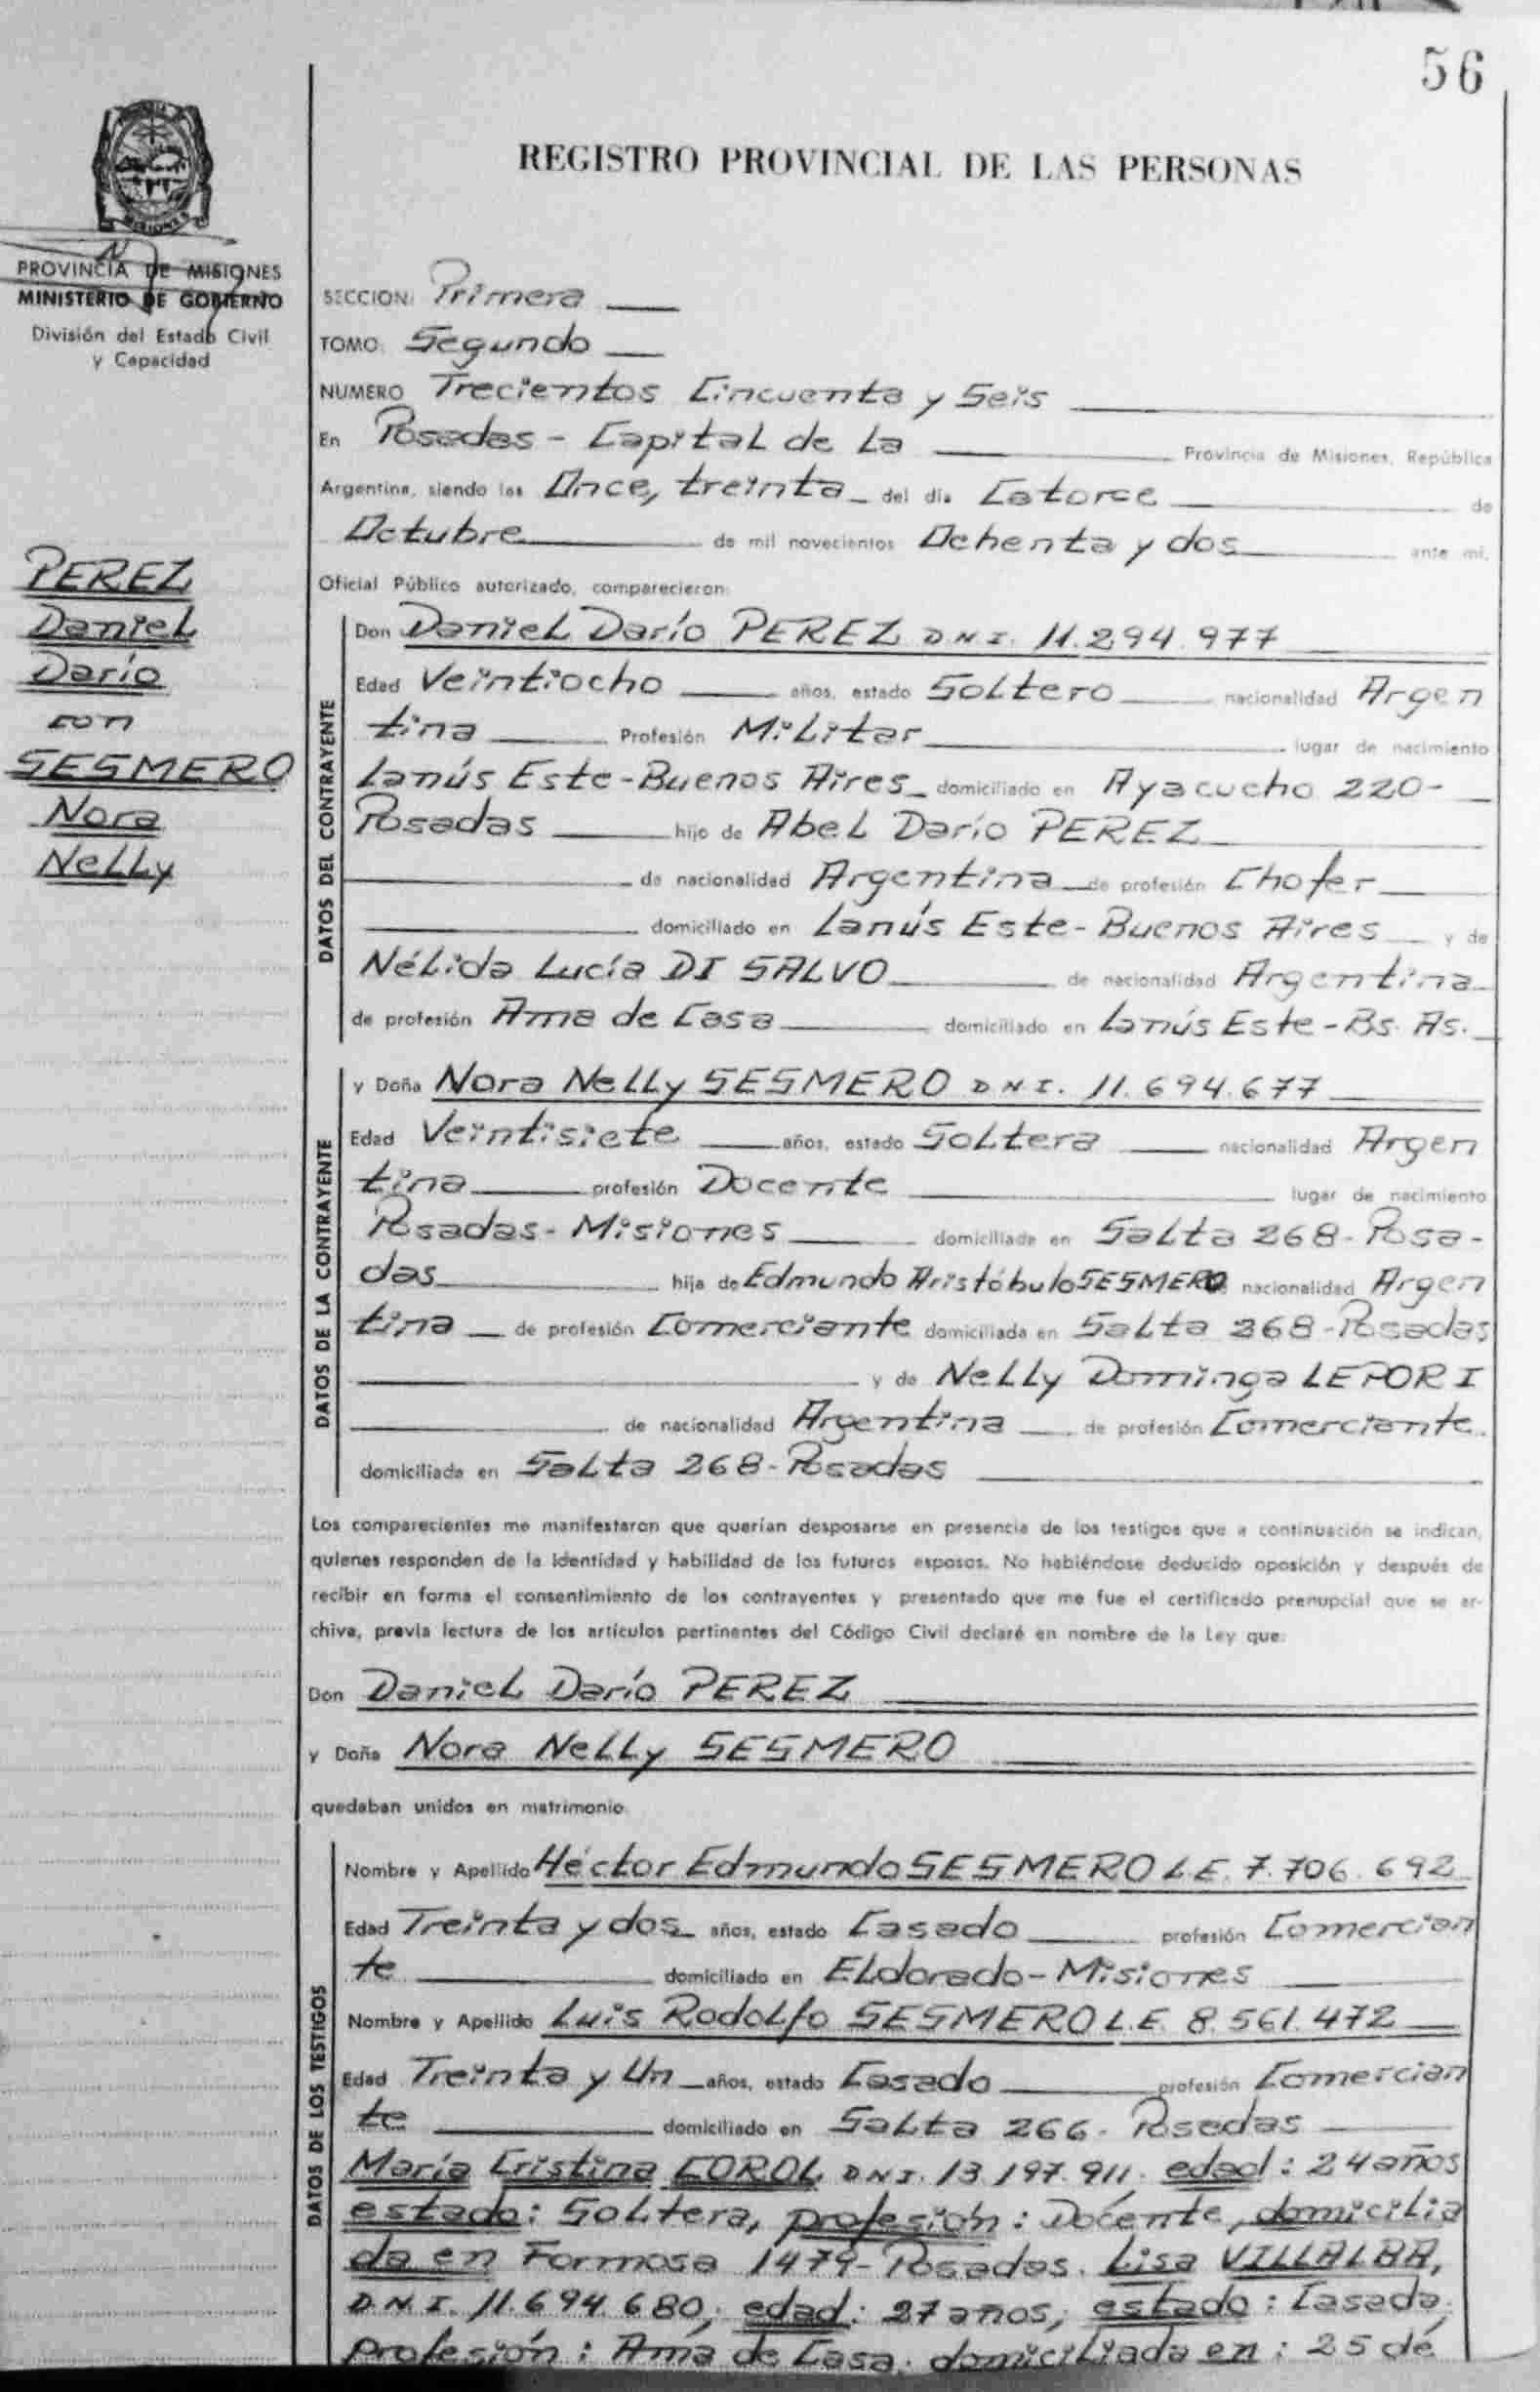 56
REGISTRO PROVINCIAL DE LAS PERSONAS
MISIONES
PROVINCIA DE MISIONES
MINISTERIO DE GOBIERNO
División del Estado Civil
y Capacidad
PEREZ
Daniel
Darío
con
SESMERO
Nora
Nelly
SECCION: Primera
TOMO: Segundo
NUMERO Trecientos Cincuenta y Seis
En Posadas - Capital de La Provincia de Misiones, República
Argentina, siendo las Once, treinta del día Catorce de
Octubre de mil novecientos Ochenta y dos ante mi,
Oficial Público autorizado, comparecieron:
DATOS DEL CONTRAYENTE
Don Daniel Darío PEREZ D.N.I. 11.294.977
Edad Veintiocho años, estado Soltero nacionalidad Argen
tina Profesión Militar lugar de nacimiento
Lanús Este - Buenos Aires domiciliado en Ayacucho 220-
Posadas hijo de Abel Darío PEREZ
de nacionalidad Argentina de profesión Chofer
domiciliado en Lanús Este - Buenos Aires y de
Nélida Lucía DI SALVO de nacionalidad Argentina
de profesión Ama de Casa domiciliado en Lanús Este - Bs. As.
DATOS DE LA CONTRAYENTE
y Doña Nora Nelly SESMERO D.N.I. 11.694.677
Edad Veintisiete años, estado Soltera nacionalidad Argen
tina profesión Docente lugar de nacimiento
Posadas - Misiones domiciliada en Salta 268 - Posa-
das hija de Edmundo Aristóbulo SESMERO nacionalidad Argen
tina de profesión Comerciante domiciliada en Salta 268 - Posadas
y de Nelly Dominga LEPORI
de nacionalidad Argentina de profesión Comerciante
domiciliada en Salta 268 - Posadas
Los comparecientes me manifestaron que querían desposarse en presencia de los testigos que a continuación se indican,
quienes responden de la identidad y habilidad de los futuros esposos. No habiéndose deducido oposición y después de
recibir en forma el consentimiento de los contrayentes y presentado que me fue el certificado prenupcial que se ar-
chiva, previa lectura de los artículos pertinentes del Código Civil declaré en nombre de la Ley que:
Don Daniel Darío PEREZ
y Doña Nora Nelly SESMERO
quedaban unidos en matrimonio.
DATOS DE LOS TESTIGOS
Nombre y Apellido Héctor Edmundo SESMERO L.E. 7.706.692
Edad Treinta y dos años, estado Casado profesión Comercian
te domiciliado en Eldorado - Misiones
Nombre y Apellido Luis Rodolfo SESMERO L.E. 8.561.472
Edad Treinta y Un años, estado Casado profesión Comercian
te domiciliado en Salta 266 - Posadas
María Cristina COROL D.N.I. 13.197.911. edad: 24 años
estado: Soltera, profesión: Docente, domicilia
da en Formosa 1479 - Posadas. Lisa VILLALBA,
D.N.I. 11.694.680; edad: 27 años; estado: Casada;
profesión: Ama de Casa; domiciliada en: 25 de